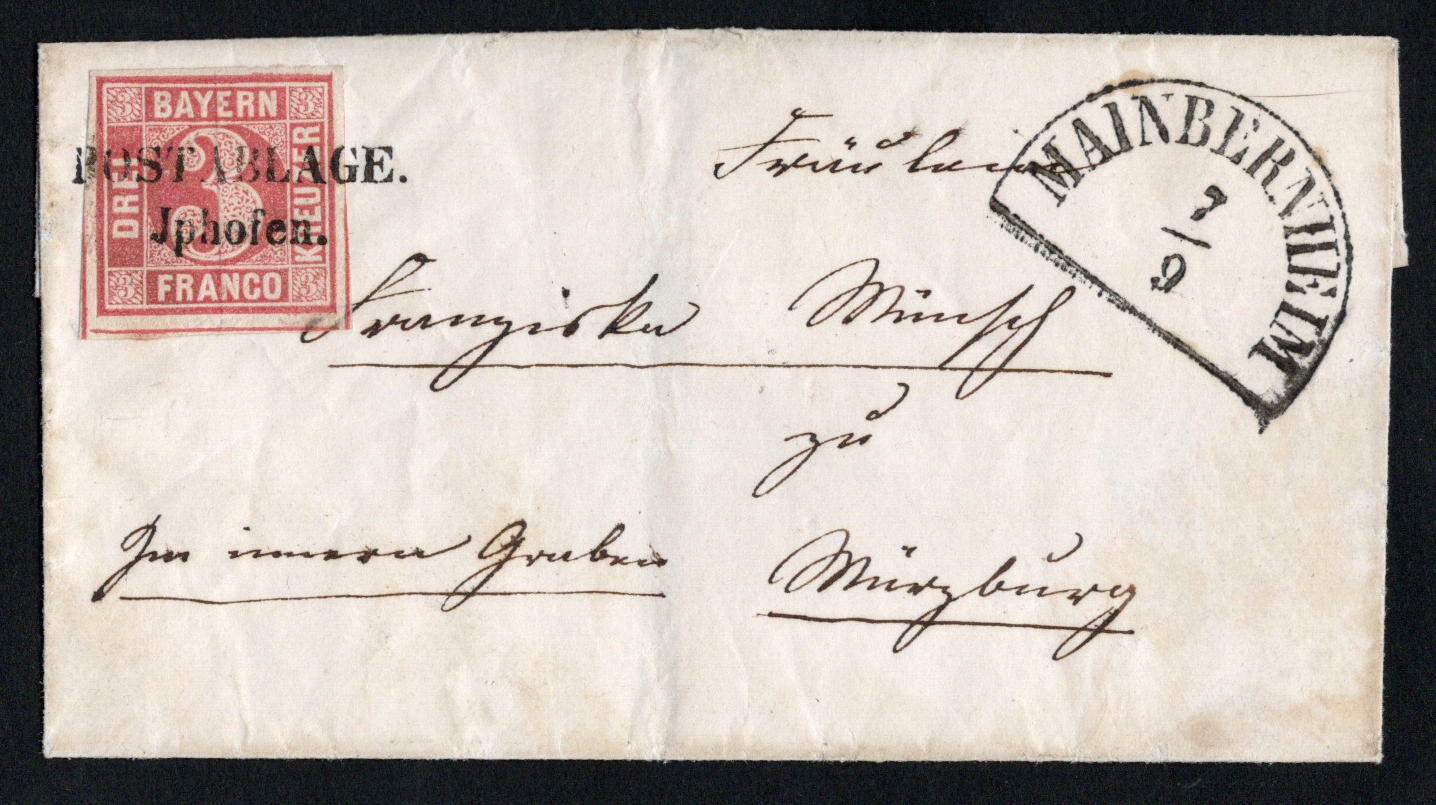 3 BAYERN 3
DREI 3 KREUZER
3 FRANCO 3
POSTABLAGE.
Jphofen.
MAINBERNHEIM
7/9
Fräulein
Franziska Münch
zu
Im innern Graben Würzburg